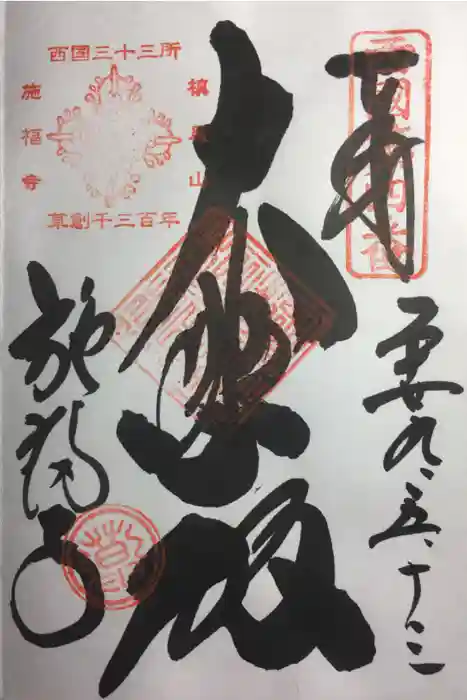 奉拝
西國第四番
九、五、十三
大悲殿
西国三十三所
槇尾山
施福寺
草創千三百年
施福寺